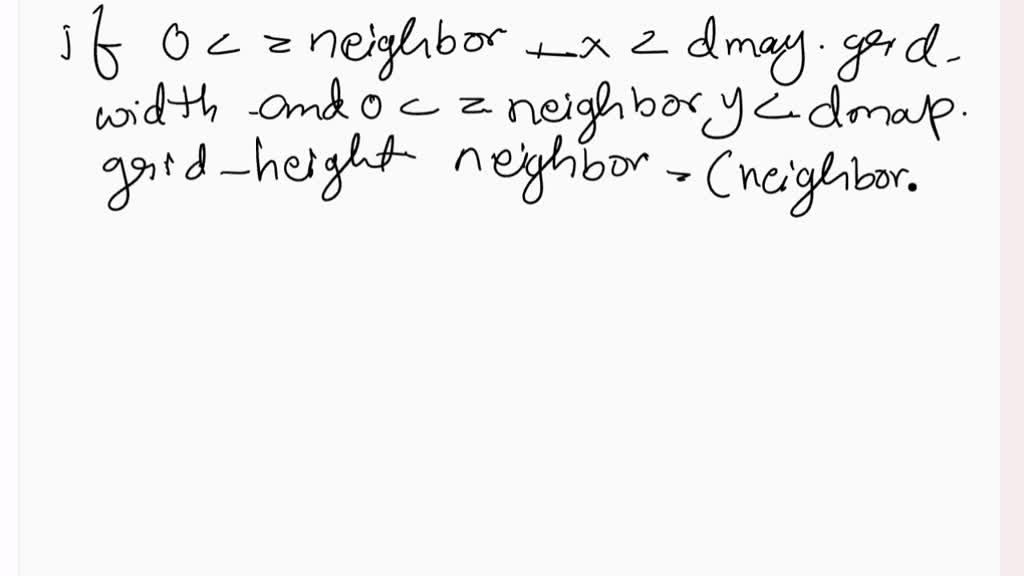 if 0 < = neighbor _ x < dmay. gerd_
width and 0 < = neighbor y < dmap.
gerid_height neighbor = (neighbor.